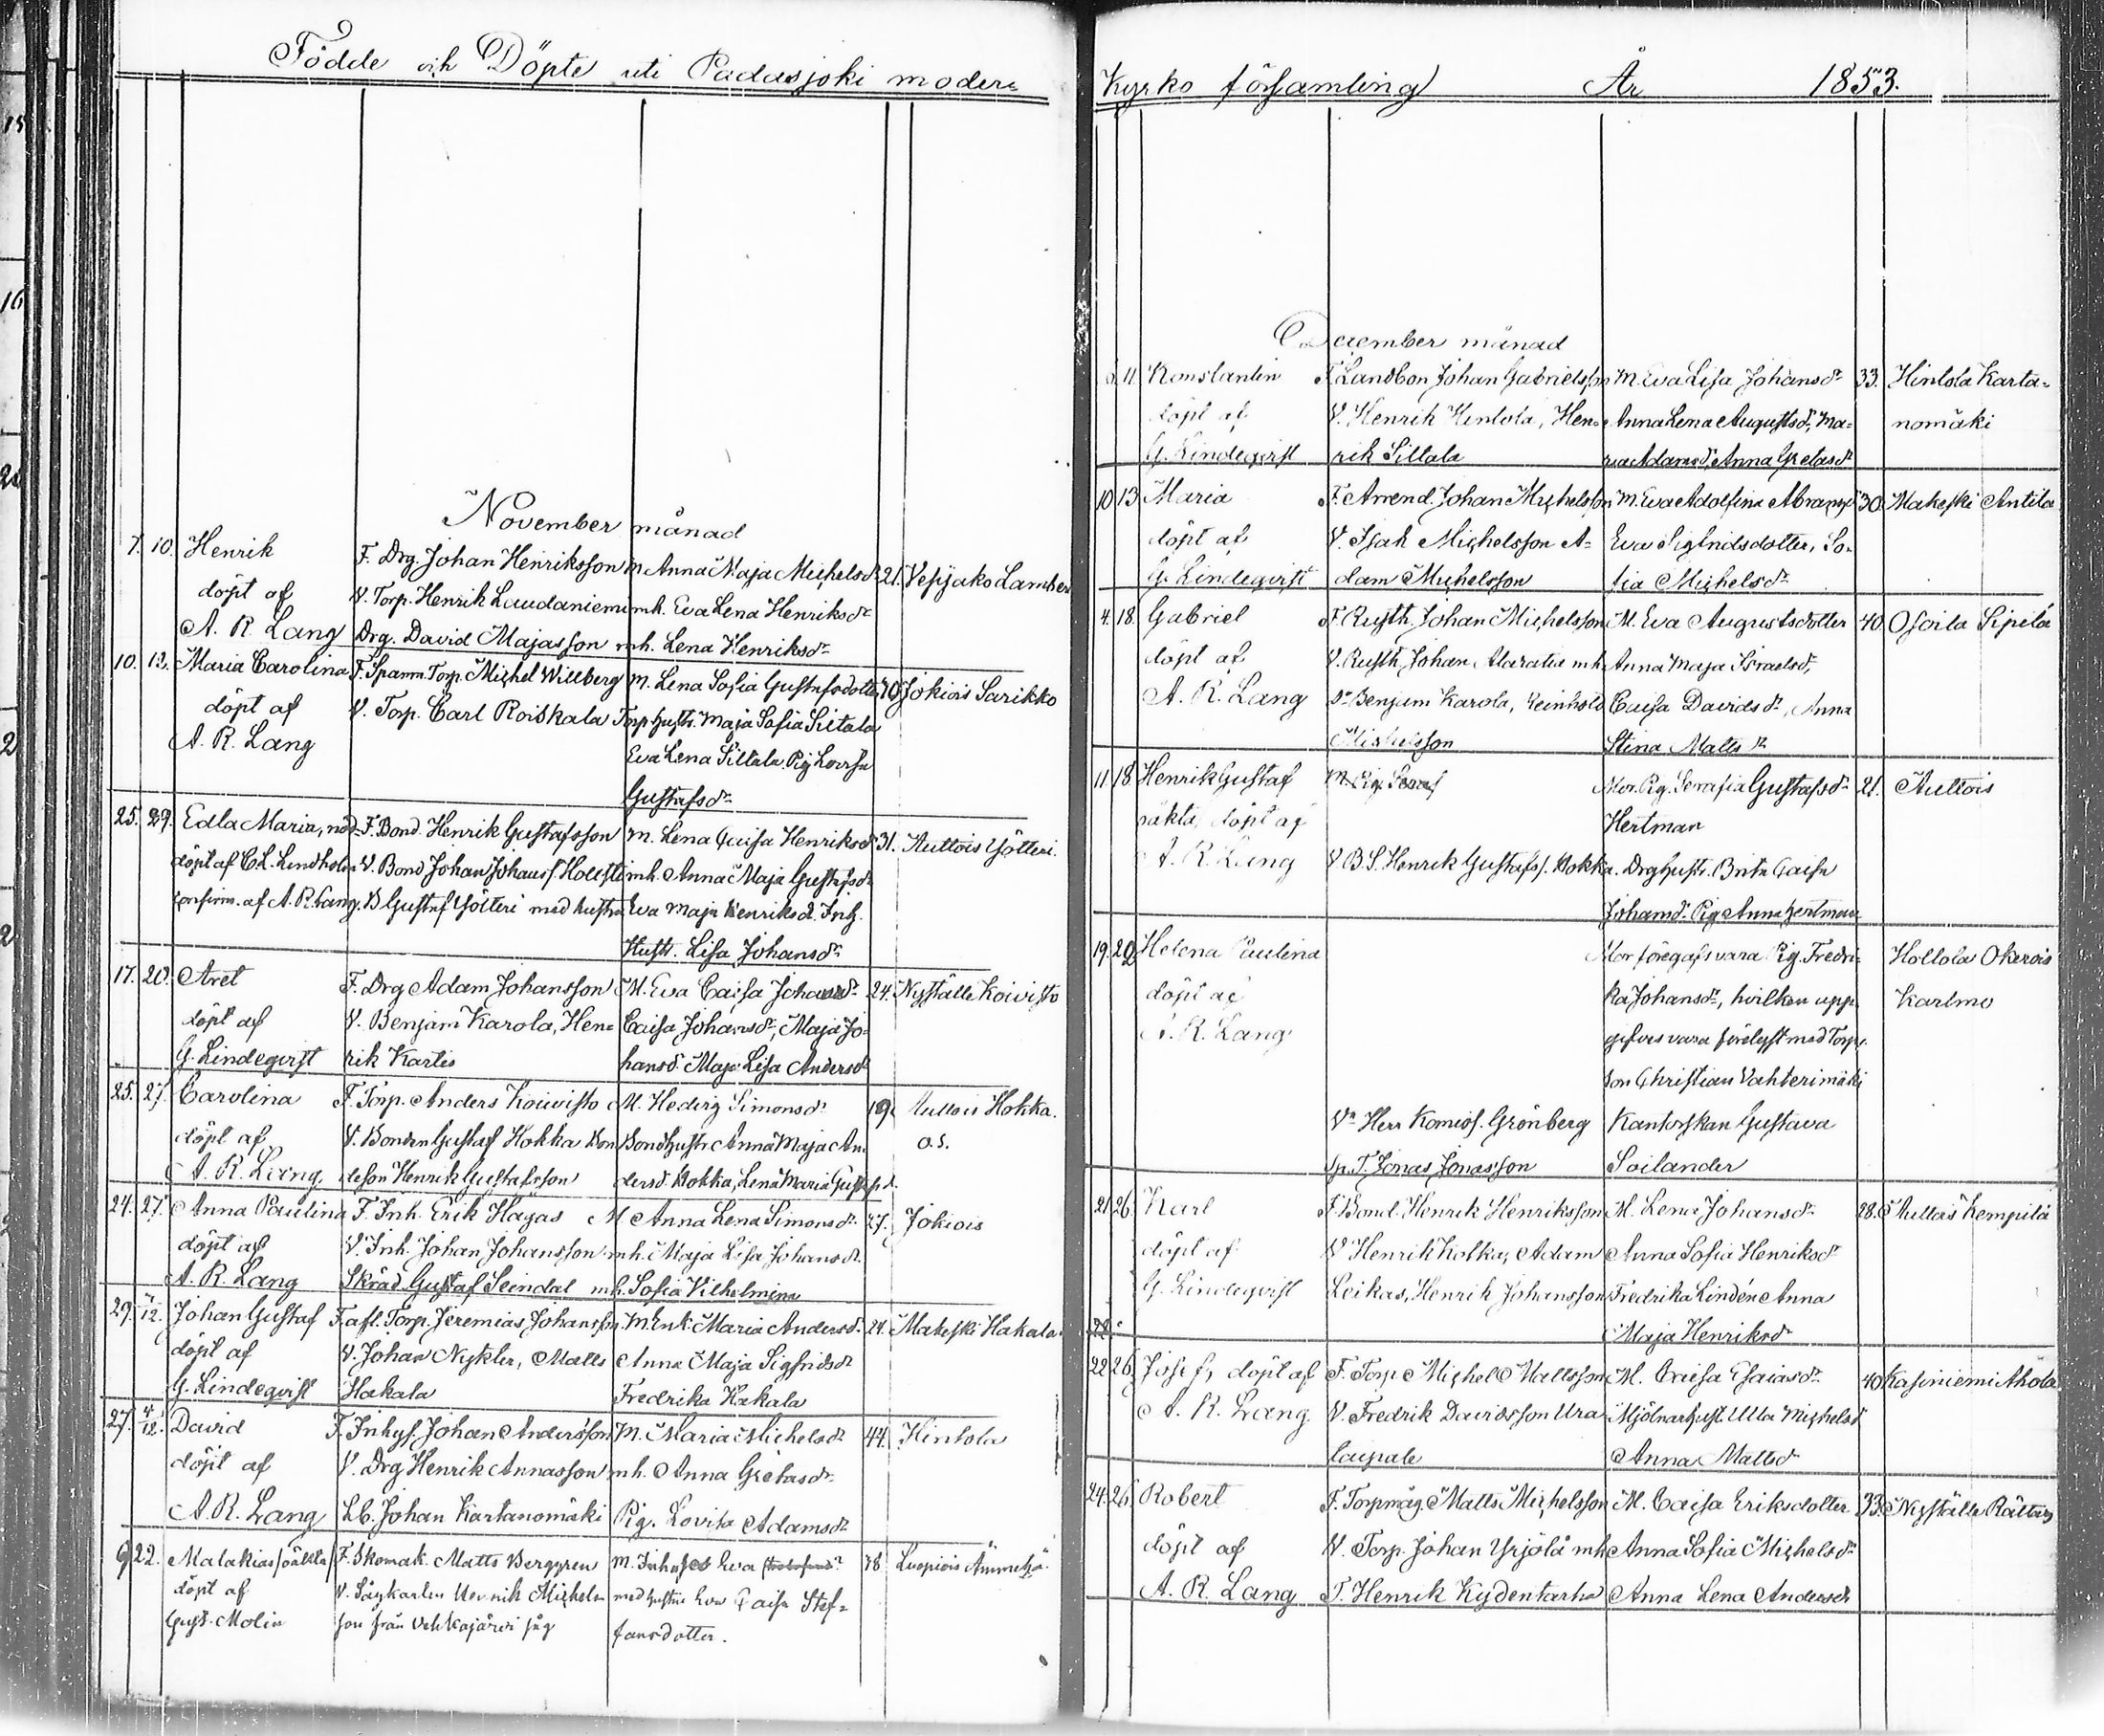 Födde och Döpte uti Padasjoki moder=
November månad
7. 10. Henrik F. Drg. Johan Henriksson M. Anna Maja Michelsdr 21. Vesijako
döpt af V. Torp. Henrik Laudaniemi mh. Eva Lena Henriksdr
A. R. Lang Drg. David Majasson mh. Lena Henriksdr
10. 13. Maria Carolina F. Spanm. Torp. Michel Willberg M. Lena Sofia Gustafsdotter Jokiois Sarikko
döpt af V. Torp. Carl Roiskala Torp. hustr. Maja Sofia Siltala
A. R. Lang Eva Lena Siltala. Pig. Lovisa
Gustafsdr
25. 29. Edla Maria, nöd- F. Bond. Henrik Gustafsson M. Lena Caisa Henriksdr 31. Auttois Yötteri.
döpt af C. L. Lindholm V. Bond Johan Johanss. mh. Anna Maja Gustafsdr
confirm. af A. R. Lang. B Gustaf Yötteri med hustru Eva Maja Henriksd. Inh.
Hustr. Lisa Johansdr
17. 20. Aret F. Drg Adam Johansson M. Eva Caisa Johansdr 24. Nyställe Koivisto
döpt af V. Benjam Karola, Hen= Caisa Johansdr, Maja Jo=
G. Lindeqvist rik Kartis hansd. Maja Lisa Andersd
25. 27. Carolina F. Torp. Anders Koivisto M. Hedvig Simonsdr 19. Auttois Hokka.
döpt af V. Bonden Gustaf Hokka Bon Bondhustr Anna Maja An o.s.
A. R. Lang. deson Henrik Gustafsson dersd. Hokka, Lena Maria Gustafsd.
24. 27. Anna Paulina F. Inh. Erik Hagas M Anna Lena Simonsdr 27. Jokiois
döpt af V. Inh. Johan Johansson mh. Maja Lisa Johansdr.
A. R. Lang Skräd. Gustaf Seindal mh. Sofia Vilhelmina
29. 4/12. Johan Gustaf F. afl. Torp. Jeremias Johansson M. Enk. Maria Andersd. 24. Maheski Hakala
döpt af V. Johan Nykler, Matts Anna Maja Sigfridsdr
G. Lindeqvist Hakala Fredrika Hakala
27. 4/12. David F. Inhys. Johan Andersson M. Maria Michelsdr 44. Hintola
döpt af V. Drg Henrik Annasson mh. Anna Gretasdr.
A. R. Lang Lb. Johan Kartanomäki Pig. Lovisa Adamsdr
9 22. Malakias F. Skomak. Matts Berggren M. Eva 38 Luopiois
döpt af V. Sågkarlen Henrik Michels= med hustru Eva Caisa Stef=
Gust. Molin son från Vehkajärvi såg fansdotter.
Kyrko församling År 1853.
December månad
11. Konstantin F. Landbon Johan Gabrielsson M. Eva Lisa Johansdr 33. Hintola Karta=
döpt af V. Henrik Hintola, Hen= Anna Lena Augustsdr, Ma= nomäki
G. Lindeqvist rik Siltala ria Adamsd. Anna Gretasdr
10 13 Maria F. Arrend. Johan Michelsson M. Eva Adolfina Abramsd 30. Maheski Antila
döpt af V. Isak Michelsson A= Eva Sigfridsdotter, So=
G. Lindeqvist dam Michelsson fia Michelsdr
4. 18. Gabriel F. Rusth. Johan Michelsson M. Eva Augustsdotter 40. Osoila Sipilä
döpt af V. Rusth. Johan Alaratia mh. Anna Maja Israelsd,
A. R. Lang Dr Benjam Karola, Reinhold Caisa Davidsdr, Anna
Michelsson Stina Mattsdr
11. 18. Henrik Gustaf Mor. Pig. Serafia Gustafsdr 21. Auttois
oäkta, döpt af Hertman
A. R. Lang V B. S. Henrik Gustafss. Hokka. Drghustr. Brita Caisa
Johansdr. Pig. Anna Hertman
19. 20. Helena Paulina Mor föregafs vara Pig. Fredri= Hollola Okerois
döpt af ka Johansdr, hvilken upp= Kartmo
A. R. Lang gifves vara förelyst med Torp.
son Christian Vahterimäki
Vn Herr Grönberg Kantorskan Gustava
Sp. T. Jonas Jonasson Soilander
21. 26. Karl F. Bond. Henrik Henriksson M. Lena Johansdr 28. Auttois Kempilä
döpt af V Henrik Hokka, Adam Anna Sofia Henriksdr
G. Lindeqvist Leikas, Henrik Johansson Fredrika Lindén Anna
Maja Henriksdr
22 26 Josef, döpt af F. Torp Michel Mattsson M. Caisa Esaiasdr 40 Kasiniemi Ahola
A. R. Lang. V. Fredrik Davidsson Ura Mjölnarhust. Ulla Michelsd
laipale Anna Mattsd
24. 26. Robert F. Torpmåg. Matts Michelsson M. Caisa Eriksdotter 33. Nyställe
döpt af V. Torp. Johan Yrjölä mh Anna Sofia Michelsdr
A. R. Lang T. Henrik Kydentarha Anna Lena Andersdr